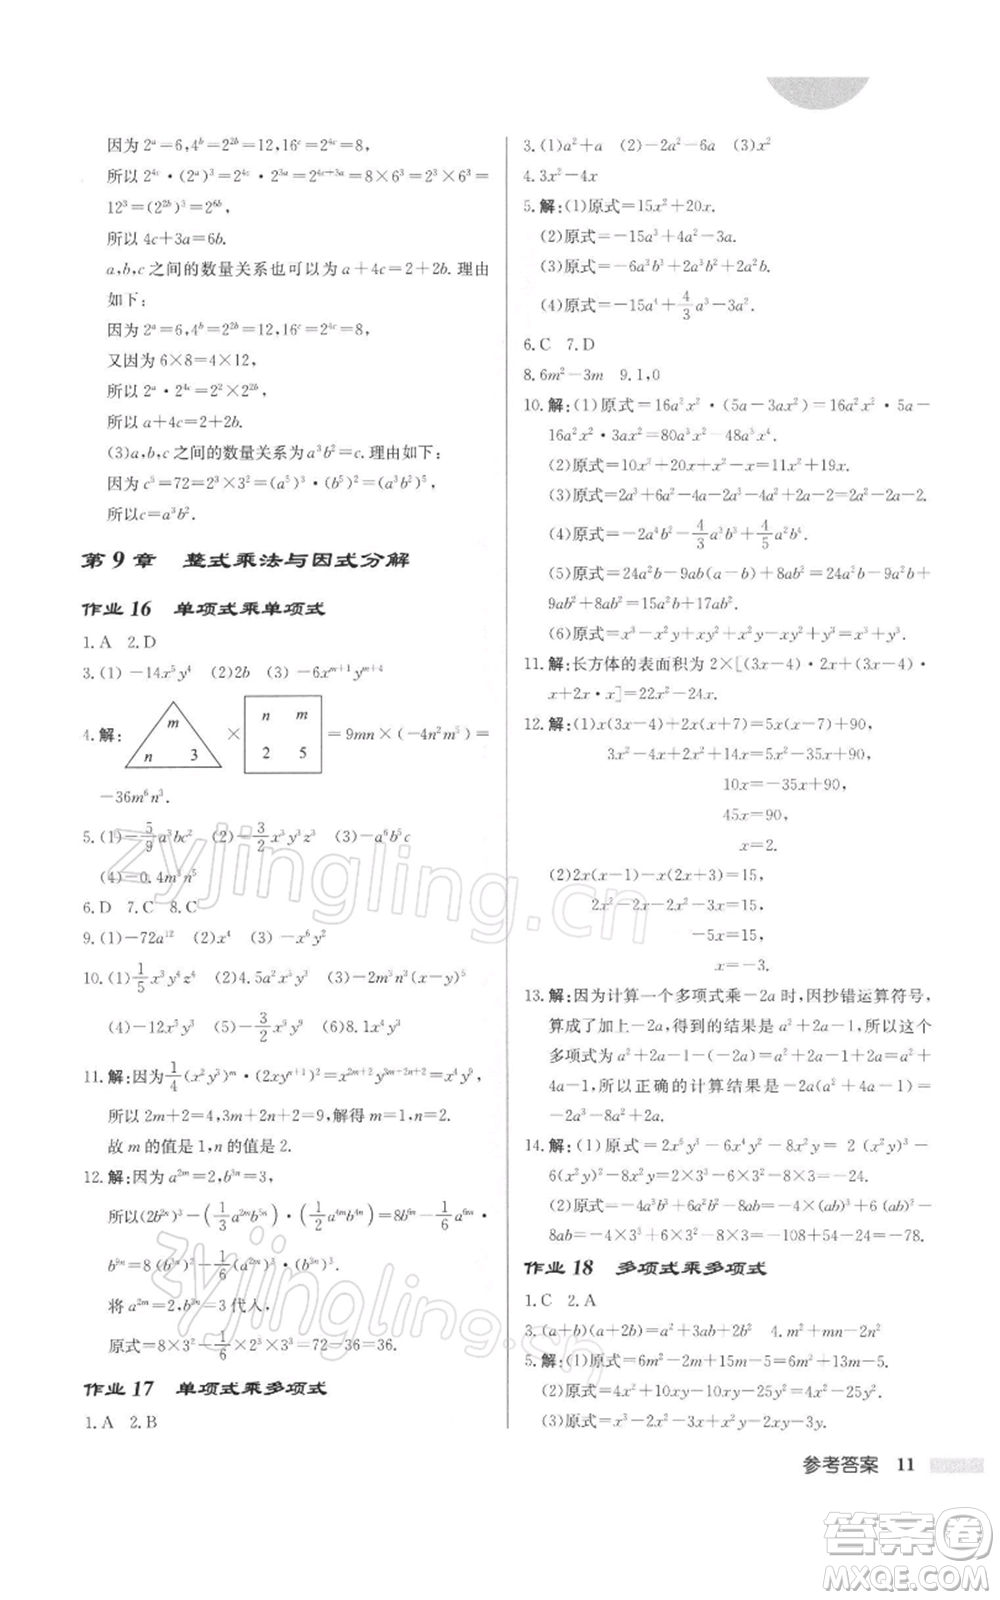 因为 2ᵃ=6,4ᵇ=2²ᵇ=12,16ᶜ=2⁴ᶜ=8,
所以 2⁴ᶜ·(2ᵃ)³=2⁴ᶜ·2³ᵃ=2⁴ᶜ⁺³ᵃ=8×6³=
12³=(2²ᵇ)³=2⁶ᵇ,
所以 4c+3a=6b.
a,b,c 之间的数量关系也可以为 a+4c=2+2b. 理由
如下:
因为 2ᵃ=6,4ᵇ=2²ᵇ=12,16ᶜ=2⁴ᶜ=8,
又因为 6×8=4×12,
所以 2ᵃ·2⁴ᶜ=2²×2²ᵇ,
所以 a+4c=2+2b.
(3)a,b,c 之间的数量关系为 a³b²=c. 理由如下:
因为 c⁵=72=2³×3²=(a⁵)³·(b⁵)²=(a³b²)⁵,
所以c=a³b².
第 9 章 整式乘法与因式分解
作业 16 单项式乘单项式
1. A 2. D
3. (1)-14x⁵y⁴ (2)2b (3)-6xᵐ⁺¹yᵐ⁺⁴
4. 解: m n 3 × n m 2 5 =9mn×(-4n²m⁵)=
-36m⁶n³.
5. (1)-5/9a³bc² (2)-3/2x³y³z³ (3)-a⁶b⁵c
(4)-0.4m³n⁵
6. D 7. C 8. C
9. (1)-72a¹² (2)x⁴ (3)-x⁶y²
10. (1)1/5x³y⁴z⁴ (2)4.5a²x⁵ (3)-2m³n³(x-y)⁵
(4)-12x⁵y⁵ (5)-3/2x³y⁹ (6)8.1x⁴y³
11. 解:因为1/4(x²y³)ᵐ·(2xyⁿ⁺¹)²=x²ᵐ⁺²y³ᵐ⁺²ⁿ⁺²=x⁴y⁹,
所以 2m+2=4,3m+2n+2=9,解得 m=1,n=2.
故 m 的值是 1,n 的值是 2.
12. 解:因为 a²ᵐ=2,b³ⁿ=3,
所以(2b²ⁿ)³-(1/3a²ᵐb⁵ⁿ)·(1/2a⁴ᵐb⁴ⁿ)=8b⁶ⁿ-1/6a⁶ᵐ·
b⁹ⁿ=8(b³ⁿ)²-1/6(a²ᵐ)³·(b³ⁿ)³.
将 a²ᵐ=2,b³ⁿ=3 代入,
原式=8×3²-1/6×2³×3³=72-36=36.
作业 17 单项式乘多项式
1. A 2. B
3. (1)a²+a (2)-2a-6a² (3)x²
4. 3x²-4x
5. 解:(1)原式=15x²+20x.
(2)原式=-15a³+4a²-3a.
(3)原式=-6a³b³+2a²b²+2a²b.
(4)原式=-15a⁴+4/3a³-3a².
6. C 7. D
8. 6m²-3m 9. 1,0
10. 解:(1)原式=16a²x²·(5a-3ax²)=16a²x²·5a-
16a²x²·3ax²=80a³x²-48a³x⁴.
(2)原式=10x²+20x+x²-x=11x²+19x.
(3)原式=2a³+6a²-4a-2a³-4a²+2a=2a²-2a.
(4)原式=-2a⁴b²-4/3a³b³+4/5a²b⁴.
(5)原式=24a²b-6ab²-24a²b-12ab²+9ab²+
9ab²+8ab²=8ab².
(6)原式=x³-x²y+xy²+x²y-xy²+y³=x³+y³.
11. 解:长方体的表面积为 2×[(3x-4)·2x+(3x-4)·
x+2x·x]=22x²-24x.
12. 解:(1)x(3x-4)+2x(x+7)=5x(x-7)+90,
3x²-4x+2x²+14x=5x²-35x+90,
10x=-35x+90,
45x=90,
x=2.
(2)2x(x-1)-x(2x+3)=15,
2x²-2x-2x²-3x=15,
-5x=15,
x=-3.
13. 解:因为计算一个多项式乘-2a 时,因抄错运算符号,
算成了加上-2a,得到的结果是 a²+2a-1,所以这个
多项式为 a²+2a-1-(-2a)=a²+2a-1+2a=a²+
4a-1,所以正确的计算结果是-2a(a²+4a-1)=
-2a³-8a²+2a.
14. 解:(1)原式=2x⁶y³-6x⁴y²-8x²y= 2 (x²y)³-
6(x²y)²-8x²y=2×3³-6×3²-8×3=-24.
(2)原式=-4a³b³+6a²b²-8ab=-4(ab)³+6(ab)²-
8ab=-4×3³+6×3²-8×3=-108+54-24=-78.
作业 18 多项式乘多项式
1. C 2. A
3. (a+b)(a+2b)=a²+3ab+2b² 4. m²+mn-2n²
5. 解:(1)原式=6m²-2m-15m+5=6m²-17m+5.
(2)原式=4x²+10xy-10xy-25y²=4x²-25y².
(3)原式=x³-2x²-x²y+2xy.
参考答案 11
zyjingling.cn
zyjingling.cn
答案圈
MXQE.COM